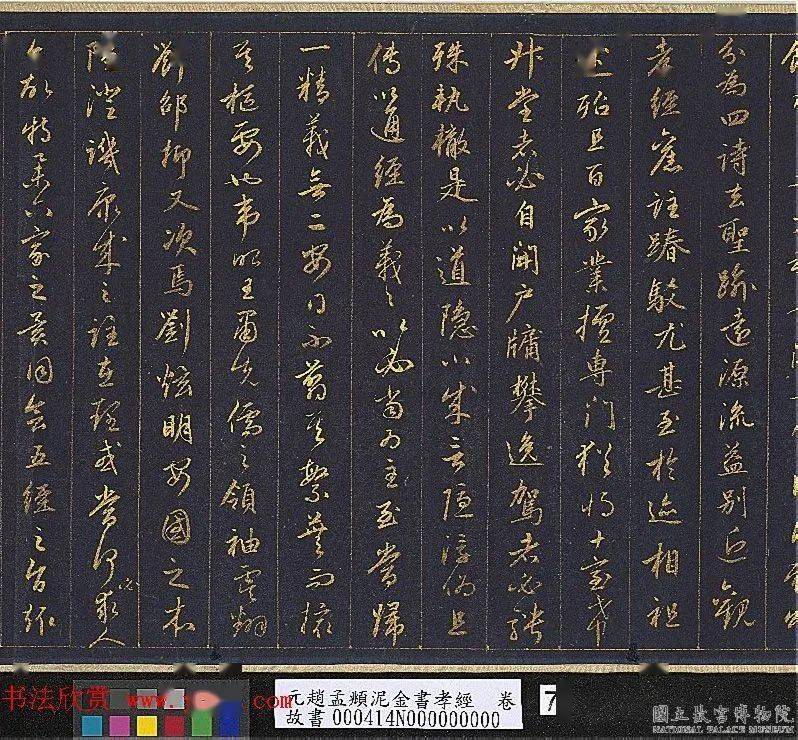 分為四詩去聖踰遠源流益別近觀
孝經舊註踳駮尤甚至於迹相祖
述殆且百家業擅專門猶將十室希
升堂者必自開戶牖攀逸駕者必騁
殊軌轍是以道隱小成言隱浮偽且
傳以通經為義々以必當為主至當歸
一精義無二安得不翦其繁蕪而撮
其樞要也韋昭王肅先儒之領袖虞翻
劉邵抑又次焉劉炫明安國之本
陸澄譏康成之註在理或當何必求人
今故特舉六家之異同會五經之旨趣
书法欣赏 www.s
元趙孟頫泥金書孝經 卷
故書000414N000000000
7
國立故宮博物院
NATIONAL PALACE MUSEUM